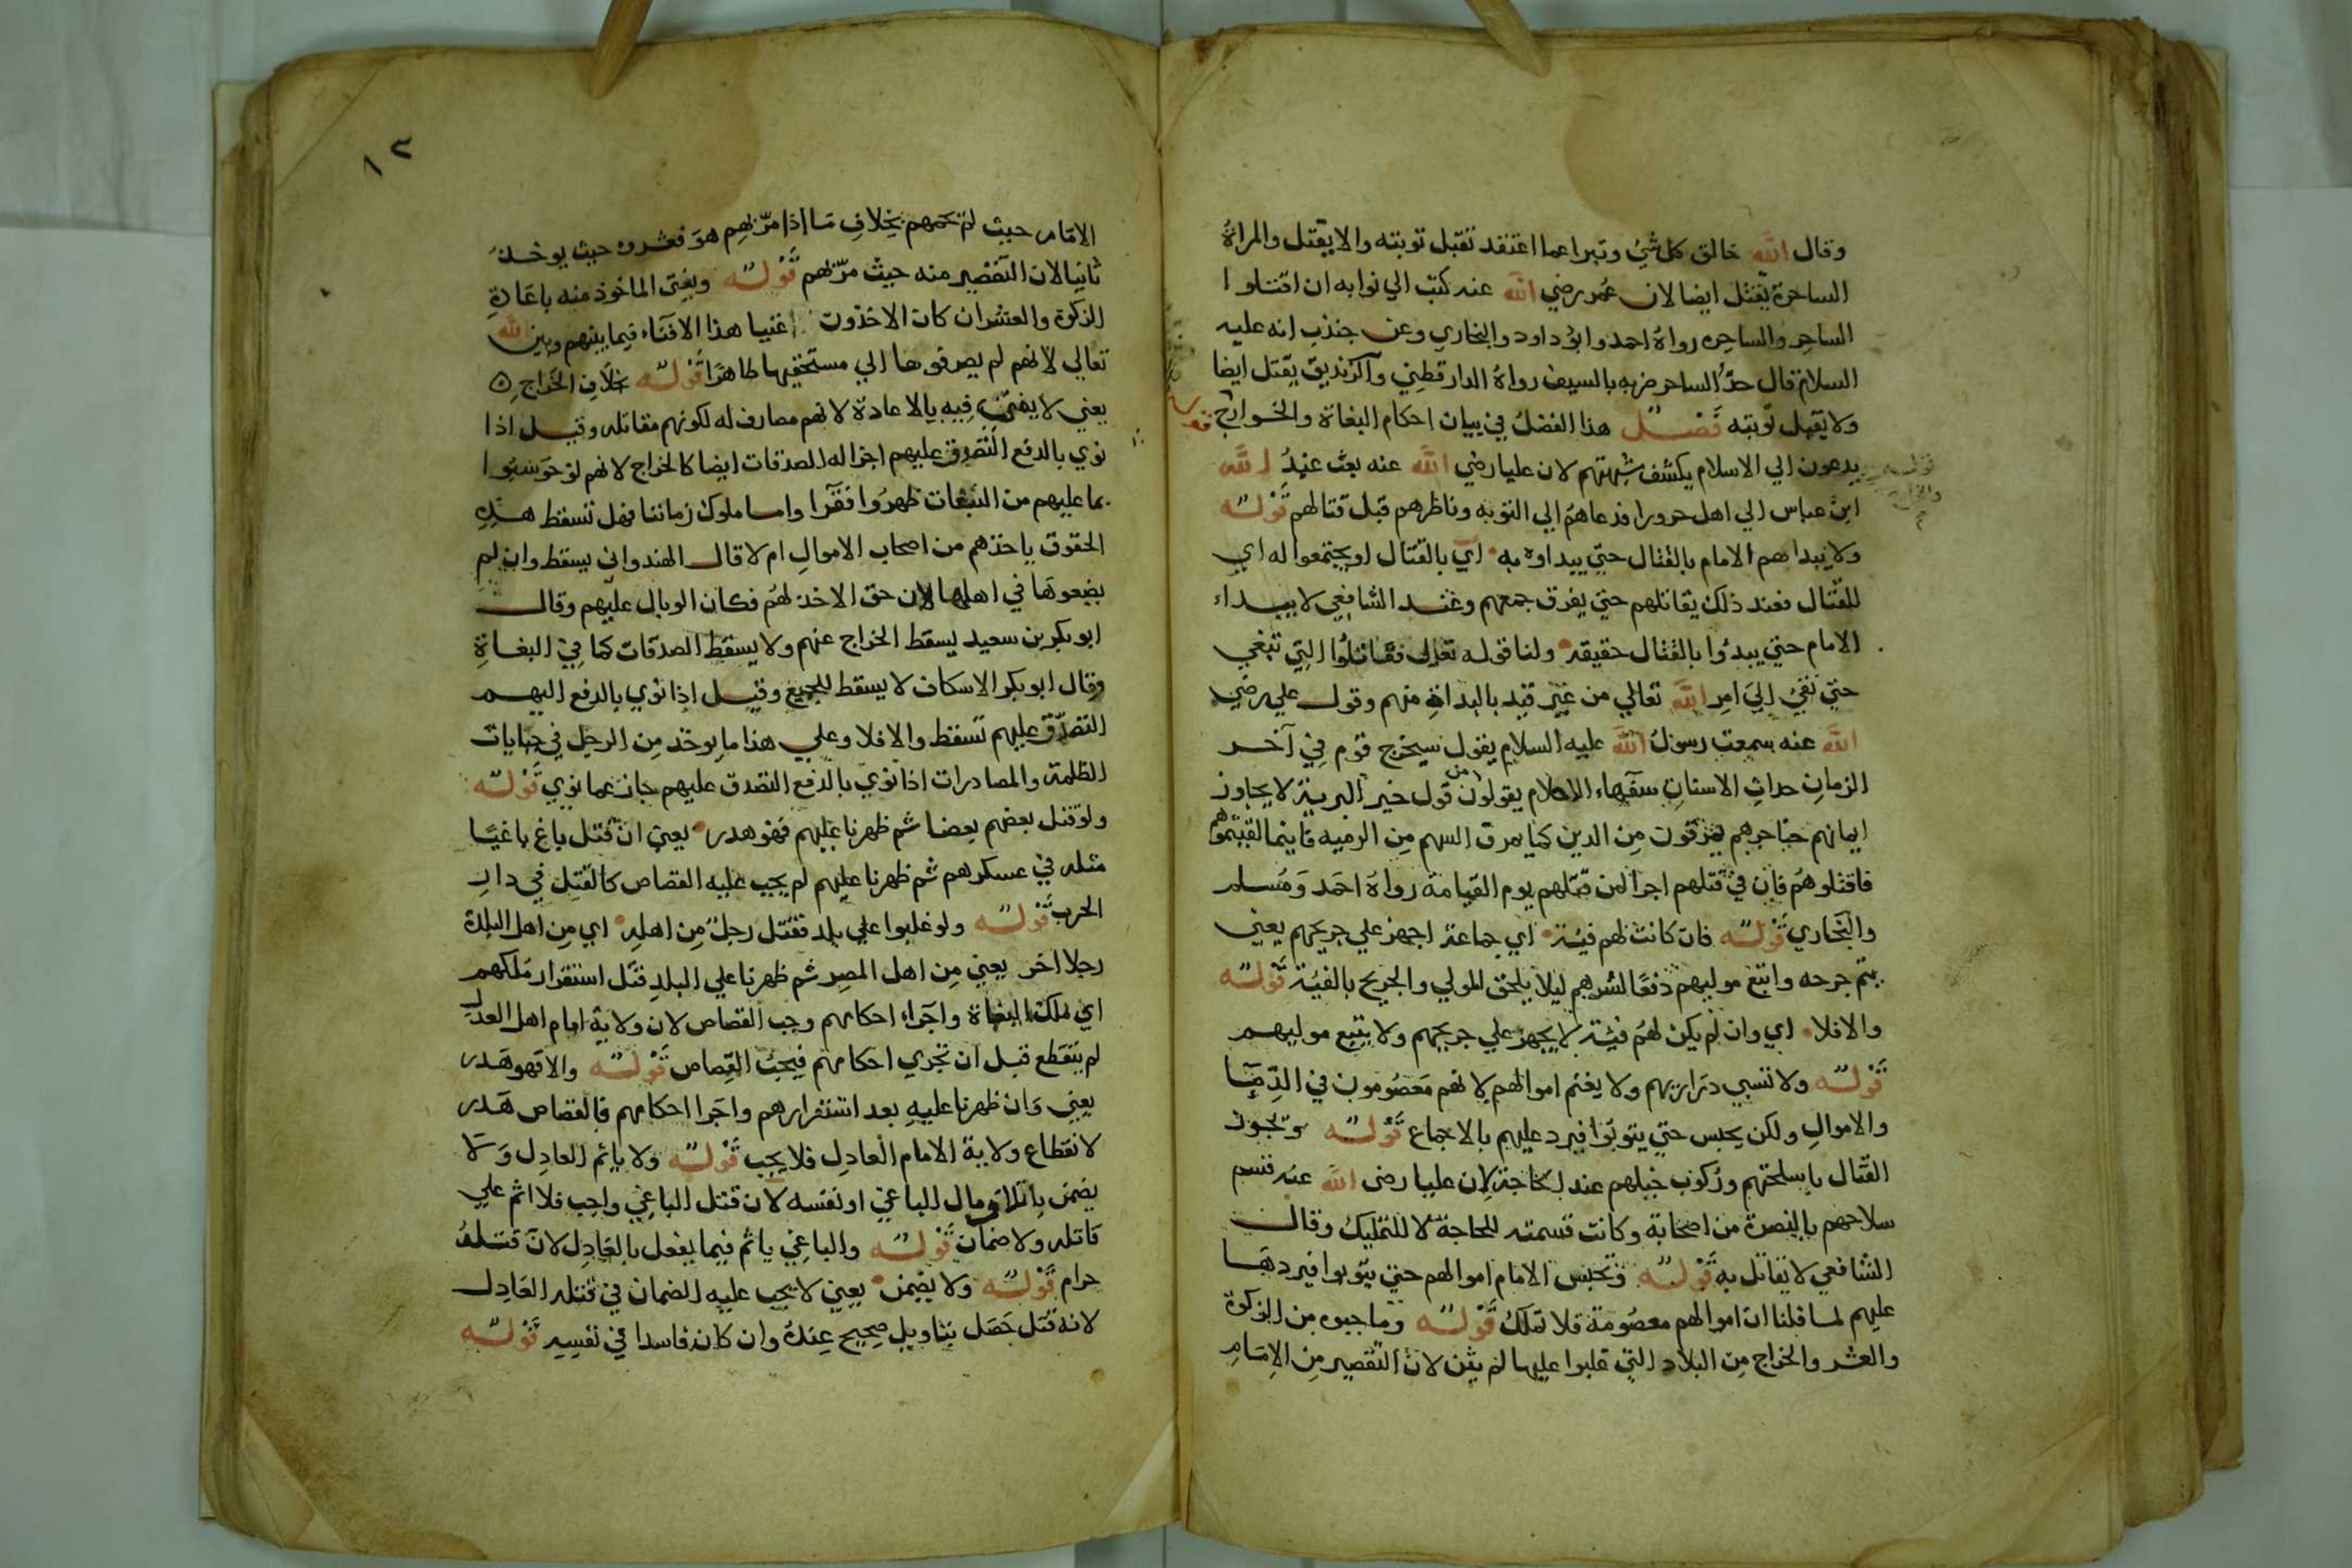 وقال الله خالق كل شيء وتبرا عما اعتقد تقبل توبته والا يقتل والمراة
الساحرة يقتل ايضا لان عمر رضي الله عنه كتب الي نوابه ان اقتلوا
الساحر والساحره رواه احمد وابو داود والبخاري وعن جندب انه عليه
السلام قال حد الساحر ضربه بالسيف رواه الدارقطني والزنديق يقتل ايضا
ولا يقبل توبته فصل هذا الفصل في بيان احكام البغاة والخوارج قوله
يدعون الي الاسلام يكشف شبهتهم لان عليا رضي الله عنه بعث عبد الله
ابن عباس الي اهل حرورا فدعاهم الي التوبه وناظرهم قبل قتالهم قوله
ولا يبداهم الامام بالقتال حتي يبداوه به اي بالقتال او يجتمعوا له اي
للقتال فعند ذلك يقاتلهم حتي يفرق جمعهم وعند الشافعي لا يبداء
الامام حتي يبدؤا بالقتال حقيقه ولنا قوله تعالي فقاتلوا التي تبغي
حتي تفي الي امر الله تعالي من غير قيد بالبداة منهم وقول علي رضي
الله عنه سمعت رسول الله عليه السلام يقول سيخرج قوم في آخر
الزمان حداث الاسنان سفهاء الاحلام يقولون من قول خير البرية لا يجاوز
ايمانهم حناجرهم يمرقون من الدين كما يمرق السهم من الرميه فاينما لقيتموهم
فاقتلوهم فان في قتلهم اجرا لمن قتلهم يوم القيامة رواه احمد ومسلم
والبخاري قوله فان كانت لهم فية اي جماعة اجهز علي جريحهم يعني
يتم جرحه واتبع موليهم دفعا لشرهم ليلا يلحق المولي والجريح بالفية قوله
والا فلا اي وان لم يكن لهم فية لا يجهز علي جريحهم ولا يتبع موليهم
قوله ولا تسبي ذراريهم ولا يغنم اموالهم لانهم معصومون في الدما
والاموال ولكن يحبس حتي يتوبوا فيرد عليهم بالاجماع قوله ويجوز
القتال باسلحتهم وركوب خيلهم عند الحاجة لان عليا رضى الله عنه قسم
سلاحهم بالبصرة من اصحابة وكانت قسمته للحاجة لا للتمليك وقال
الشافعي لا يقاتل به قوله وتحبس الامام اموالهم حتي يتوبوا فيردها
عليهم لما قلنا ان اموالهم معصومة فلا تملك قوله وما جبوه من الزكوة
والعشر والخراج من البلاد التي غلبوا عليها لم يثن لان التقصير من الامام
قوله
١٣
الامام حيث لم يحمهم بخلاف ما اذا مر بهم هو فعشروه حيث يوخذ
ثانيا لان التقصير منه حيث مر بهم قوله ويفتى الماخوذ منه باعادة
الزكوة والعشر ان كان الاخذون اغنيا هذا الافتاء فيما بينهم وبين الله
تعالي لانهم لم يصرفوها الي مستحقيها ظاهرا قوله خلاف الخراج
يعني لا يفتي فيه بالاعادة لانهم مصارف له لكونهم مقاتله وقيل اذا
نوي بالدفع التصدق عليهم اجزا له الصدقات ايضا كالخراج لانهم لو حوسبوا
بما عليهم من التبعات ظهروا فقرا واما ملوك زماننا فهل تسقط هذه
الحقوق باخذهم من اصحاب الاموال ام لا قال الهندواني يسقط وان لم
يضعوها في اهلها لان حق الاخذ لهم فكان الوبال عليهم وقال
ابو بكر بن سعيد يسقط الخراج عنهم ولا يسقط الصدقات كما في البغاة
وقال ابو بكر الاسكاف لا يسقط للجميع وقيل اذا نوي بالدفع اليهم
التصدق عليهم تسقط والا فلا وعلي هذا ما يوخذ من الرجل في جبايات
الظلمة والمصادرات اذا نوي بالدفع التصدق عليهم جاز عما نوي قوله
ولو قتل بعضهم بعضا ثم ظهرنا عليهم فهو هدر يعني ان قتل باغ باغيا
مثله في عسكرهم ثم ظهرنا عليهم لم يجب عليه القصاص كالقتل في دار
الحرب قوله ولو غلبوا علي بلد فقتل رجل من اهله اي من اهل البلدة
رجلا اخر يعني من اهل المصر ثم ظهرنا علي البلد قبل استقرار ملكهم
اي ملك البغاة واجراء احكامهم وجب القصاص لان ولاية امام اهل العدل
لم ينقطع قبل ان تجري احكامهم فيجب القصاص قوله والا فهو هدر
يعني وان ظهرنا عليه بعد استقرارهم واجرا احكامهم فالقصاص هدر
لانقطاع ولاية الامام العادل فلا يجب قوله ولا ياثم العادل ولا
يضمن باتلاف مال الباغي او نفسه لان قتل الباغي واجب فلا اثم علي
قاتله ولا ضمان قوله والباغي ياثم فيما يفعل بالعادل لان قتله
حرام قوله ولا يضمن يعني لا يجب عليه الضمان في قتله العادل
لانه قتل حصل بتاويل صحيح عنده وان كان فاسدا في نفسه قوله